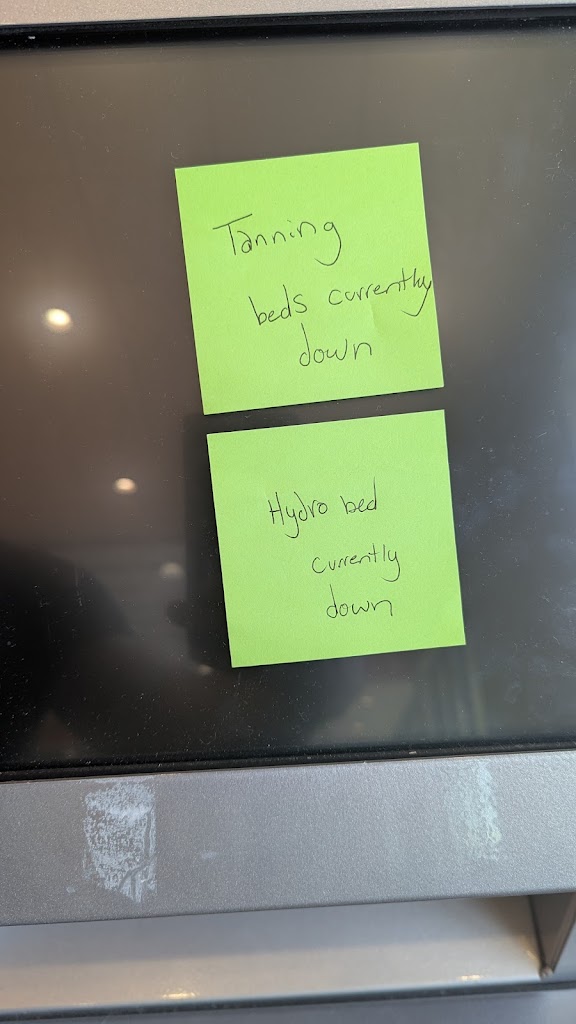 Tanning
beds currently
down
Hydro bed
currently
down